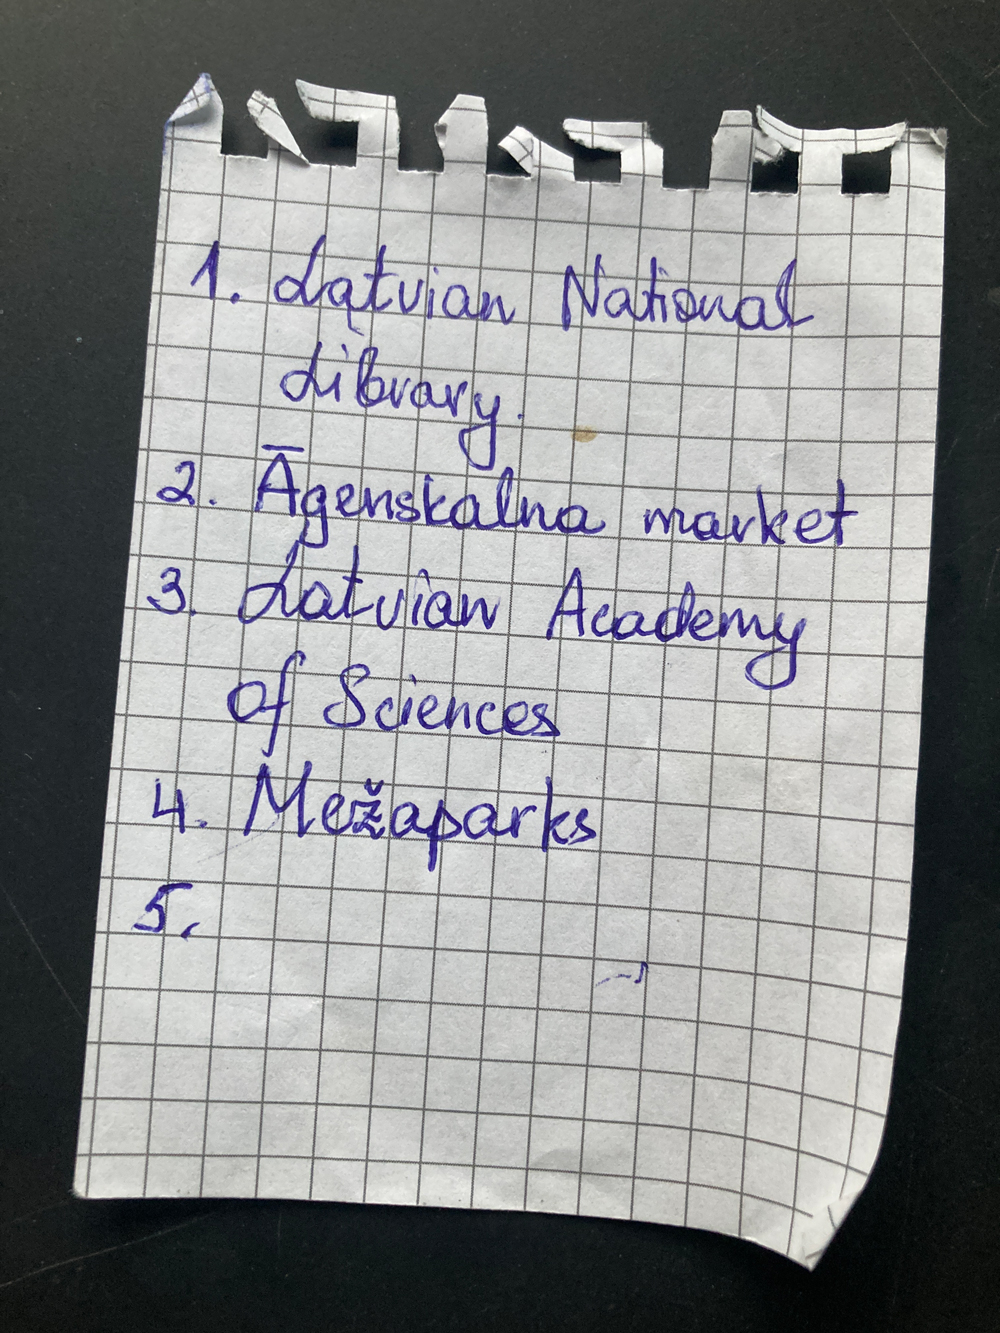 1. Latvian National
Library.
2. Āgenskalna market
3. Latvian Academy
of Sciences
4. Mežaparks
5.